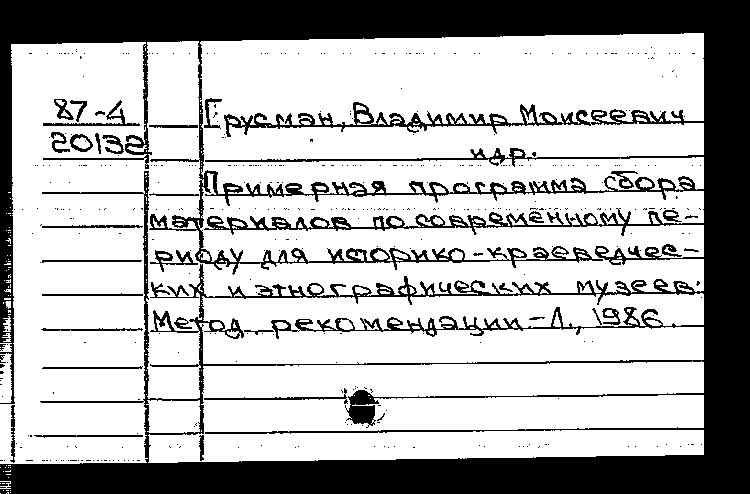 87-4 Грусман, Владимир Моисеевич
20132 и др.
Примерная программа сбора
материалов по современному пе-
риоду для историко-краеведчес-
ких и этнографических музеев:
Метод. рекомендации.-Л., 1986.